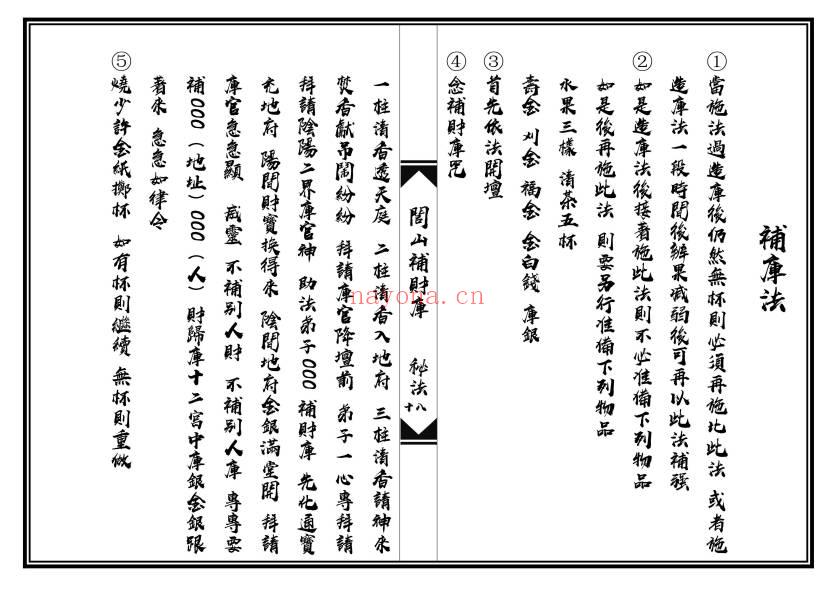 補庫法
①當施法過造庫後仍然無杯則必須再施比此法 或者施
造庫法一段時間後辦果減弱後可再以此法補强
②如是造庫法後接著施此法則不必准備下列物品
如是後再施此法 則要另行准備下列物品
水果三樣 清茶五杯
壽金 刈金 福金 金白錢 庫銀
③首先依法開壇
④念補財庫咒
閭山補財庫 秘法
十八
一柱清香透天庭 二柱清香入地府 三柱清香請神來
焚香獻吊鬧紛紛 拜請庫官降壇前 弟子一心專拜請
拜請陰陽二界庫官神 助法弟子000補財庫 先化通寶
充地府 陽間財寶換得來 陰間地府金銀滿堂開 拜請
庫官急急顯 威靈 不補別人財 不補別人庫 專專要
補000（地址）000（人）財歸庫十二宮中庫銀金銀跟
著來 急急如律令
⑤燒少許金紙擲杯 如有杯則繼續 無杯則重做
nayona.cn